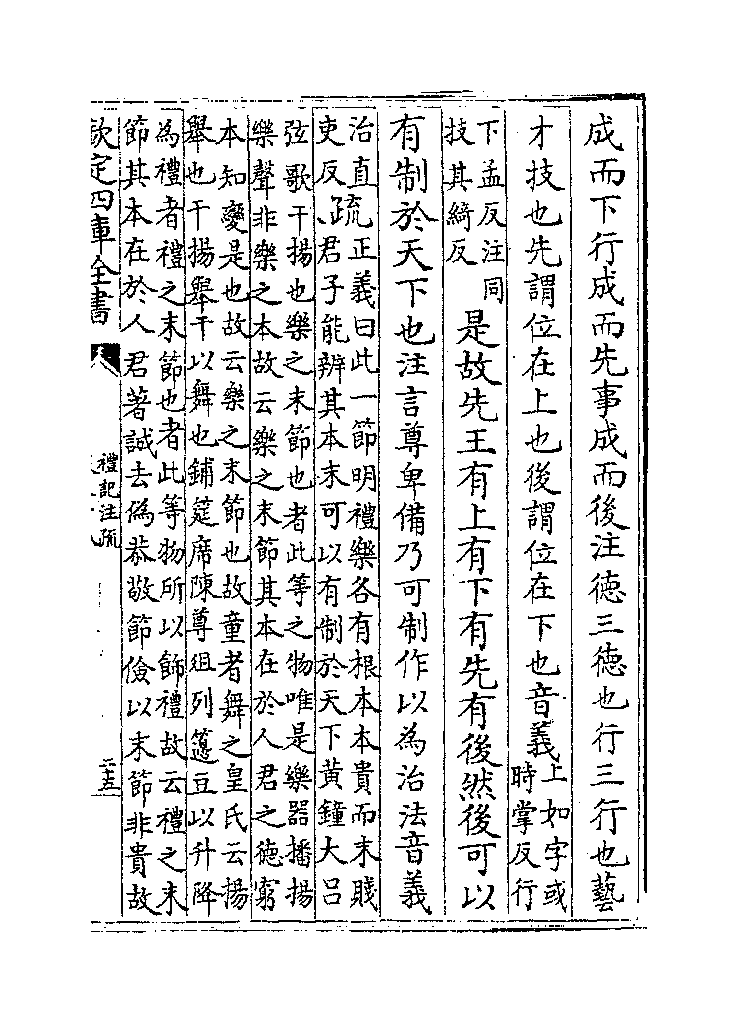 成而下行成而先事成而後注德三德也行三行也藝
才技也先謂位在上也後謂位在下也音義上如字或
時掌反行
下孟反注同
技其綺反
是故先王有上有下有先有後然後可以
有制於天下也注言尊卑備乃可制作以為治法音義
治直
吏反
疏正義曰此一節明禮樂各有根本本貴而末賤
君子能辨其本末可以有制於天下黄鐘大吕
弦歌干揚也樂之末節也者此等之物唯是樂器播揚
樂聲非樂之本故云樂之末節其本在於人君之德窮
本知變是也故云樂之末節也故童者舞之皇氏云揚
舉也干揚舉干以舞也鋪筵席陳尊俎列籩豆以升降
為禮者禮之末節也者此等物所以飾禮故云禮之末
節其本在於人君著誠去偽恭敬節儉以末節非貴故
欽定四庫全書
禮記注疏
二十五